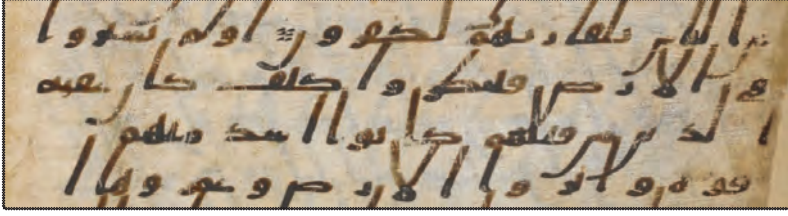 الناس بلقاى ربهم لكفرون اولم يسيروا
في الارض فينظروا كيف كان عقبه
الذين من قبلهم كانوا اشد منهم
قوه واثروا الارض وعمروها ا